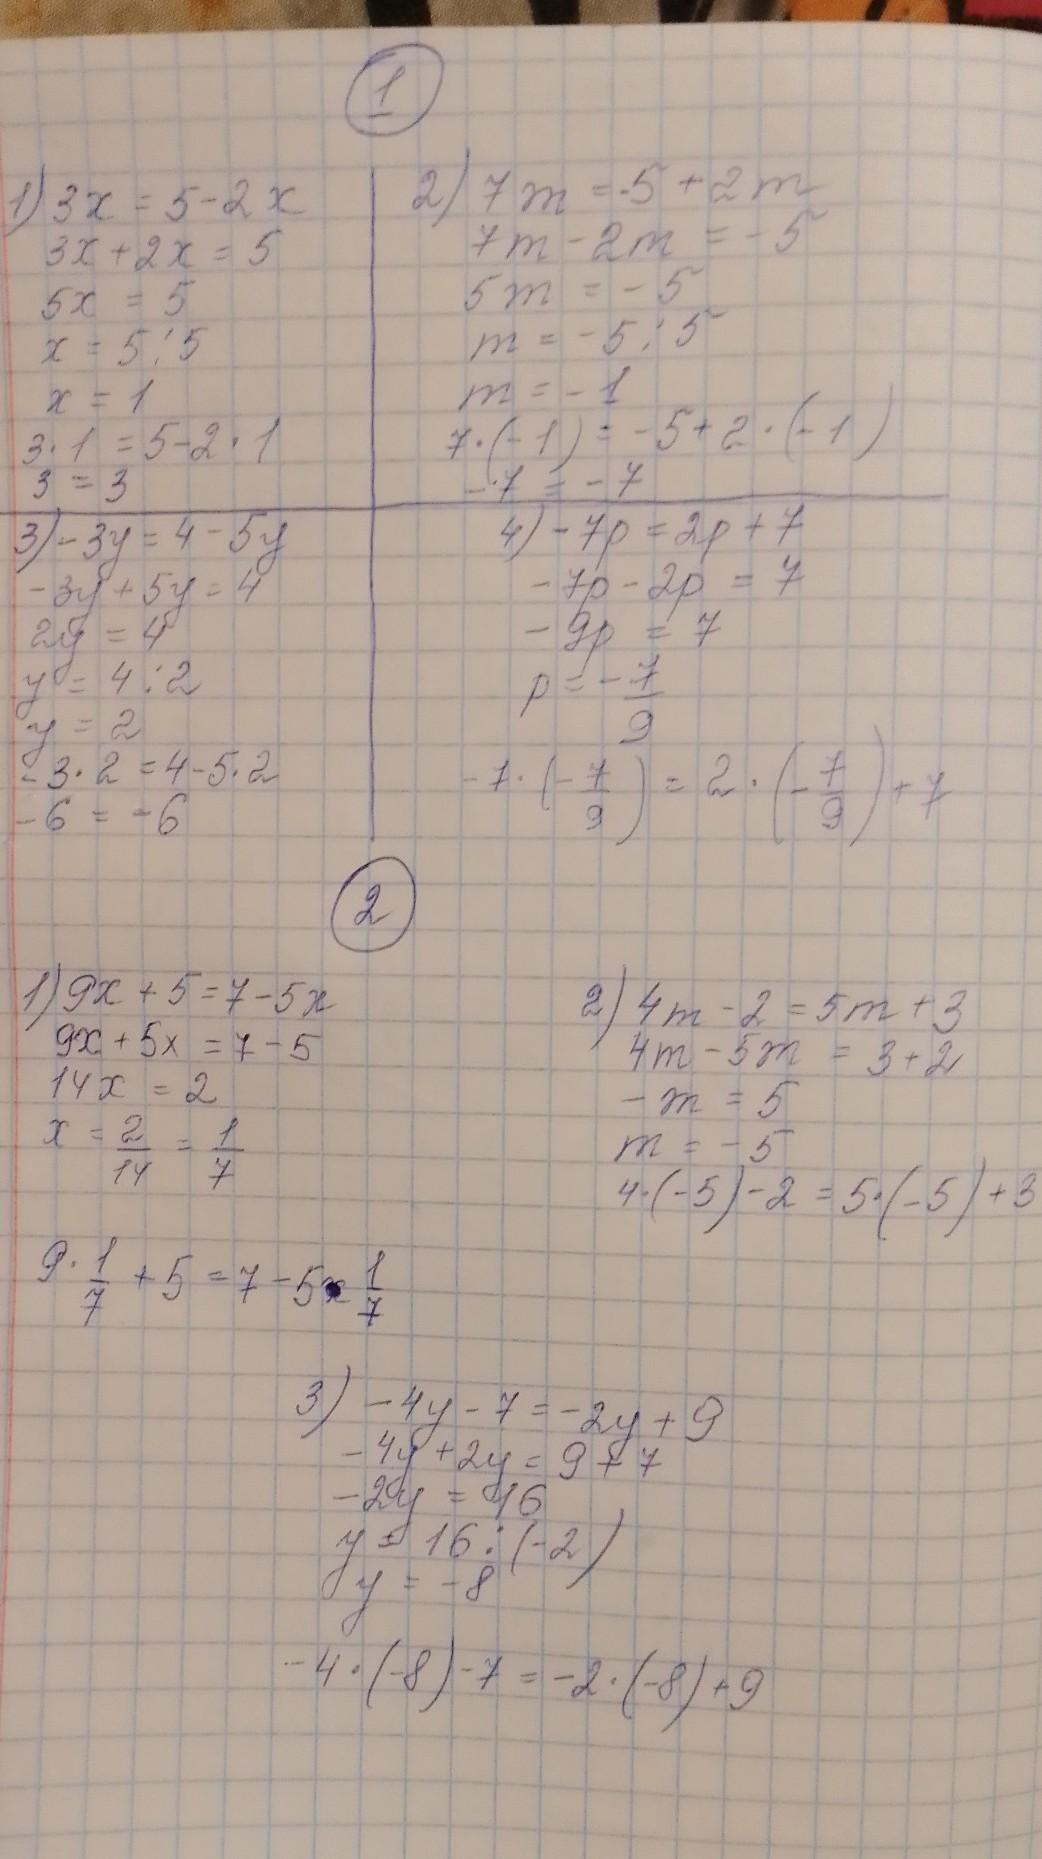 1
1) 3x = 5 - 2x
3x + 2x = 5
5x = 5
x = 5 : 5
x = 1
3 · 1 = 5 - 2 · 1
3 = 3
2) 7m = -5 + 2m
7m - 2m = -5
5m = -5
m = -5 : 5
m = -1
7 · (-1) = -5 + 2 · (-1)
-7 = -7
3) -3y = 4 - 5y
-3y + 5y = 4
2y = 4
y = 4 : 2
y = 2
-3 · 2 = 4 - 5 · 2
-6 = -6
4) -7p = 2p + 7
-7p - 2p = 7
-9p = 7
p = -7/9
-7 · (-7/9) = 2 · (-7/9) + 7
2
1) 9x + 5 = 7 - 5x
9x + 5x = 7 - 5
14x = 2
x = 2/14 = 1/7
9 · 1/7 + 5 = 7 - 5 · 1/7
2) 4m - 2 = 5m + 3
4m - 5m = 3 + 2
-m = 5
m = -5
4 · (-5) - 2 = 5 · (-5) + 3
3) -4y - 7 = -2y + 9
-4y + 2y = 9 + 7
-2y = 16
y = 16 : (-2)
y = -8
-4 · (-8) - 7 = -2 · (-8) + 9